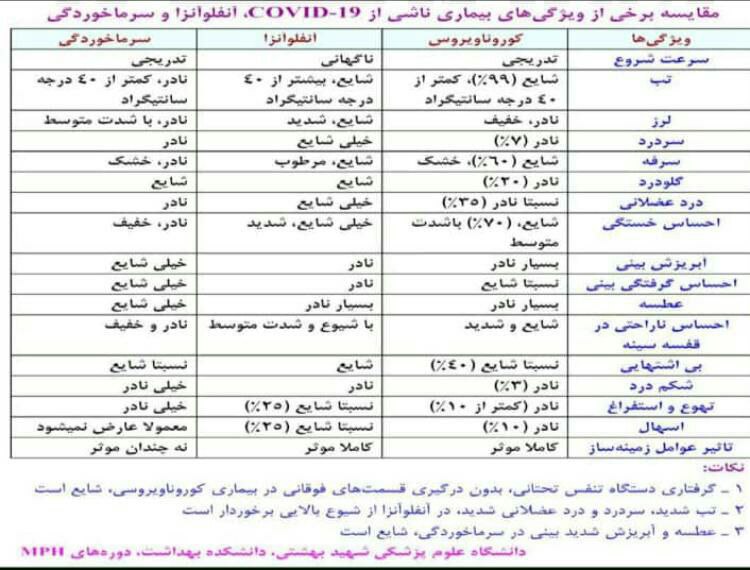 مقایسه برخی از ویژگی‌های بیماری ناشی از COVID-19، آنفلوآنزا و سرماخوردگی
ویژگی‌ها کوروناویروس آنفلوآنزا سرماخوردگی
سرعت شروع تدریجی ناگهانی تدریجی
تب شایع (۹۹٪)، کمتر از شایع، بیشتر از ۴۰ نادر، کمتر از ۴۰ درجه
۴۰ درجه سانتیگراد درجه سانتیگراد سانتیگراد
لرز نادر، خفیف شایع، شدید نادر، با شدت متوسط
سردرد نادر (۷٪) خیلی شایع نادر
سرفه شایع (۶۰٪)، خشک شایع، مرطوب نادر، خشک
گلودرد نادر (۲۰٪) شایع شایع
درد عضلانی نسبتا نادر (۳۵٪) خیلی شایع نادر
احساس خستگی شایع، (۷۰٪) باشدت خیلی شایع، شدید نادر، خفیف
متوسط
آبریزش بینی بسیار نادر نادر خیلی شایع
احساس گرفتگی بینی نسبتا شایع نادر خیلی شایع
عطسه بسیار نادر بسیار نادر خیلی شایع
احساس ناراحتی در شایع و شدید با شیوع و شدت متوسط نادر و خفیف
قفسه سینه
بی اشتهایی نسبتا شایع (۴۰٪) شایع نسبتا شایع
شکم درد نادر (۳٪) نادر خیلی نادر
تهوع و استفراغ نادر (کمتر از ۱۰٪) نسبتا شایع (۲۵٪) خیلی نادر
اسهال نادر (۱۰٪) نسبتا شایع (۲۵٪) معمولا عارض نمیشود
تاثیر عوامل زمینه‌ساز کاملا موثر کاملا موثر نه چندان موثر
نکات:
۱ ـ گرفتاری دستگاه تنفس تحتانی، بدون درگیری قسمت‌های فوقانی در بیماری کوروناویروسی، شایع است
۲ ـ تب شدید، سردرد و درد عضلانی شدید، در آنفلوآنزا از شیوع بالایی برخوردار است
۳ ـ عطسه و آبریزش شدید بینی در سرماخوردگی، شایع است
دانشگاه علوم پزشکی شهید بهشتی، دانشکده بهداشت، دوره‌های MPH